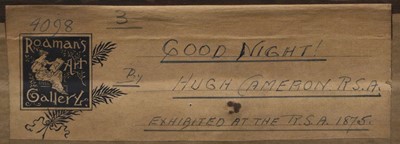 4098
3
Roamans
Art
Gallery
GOOD NIGHT!
By
HUGH CAMERON R.S.A.
EXHIBITED AT THE R.S.A. 1875.